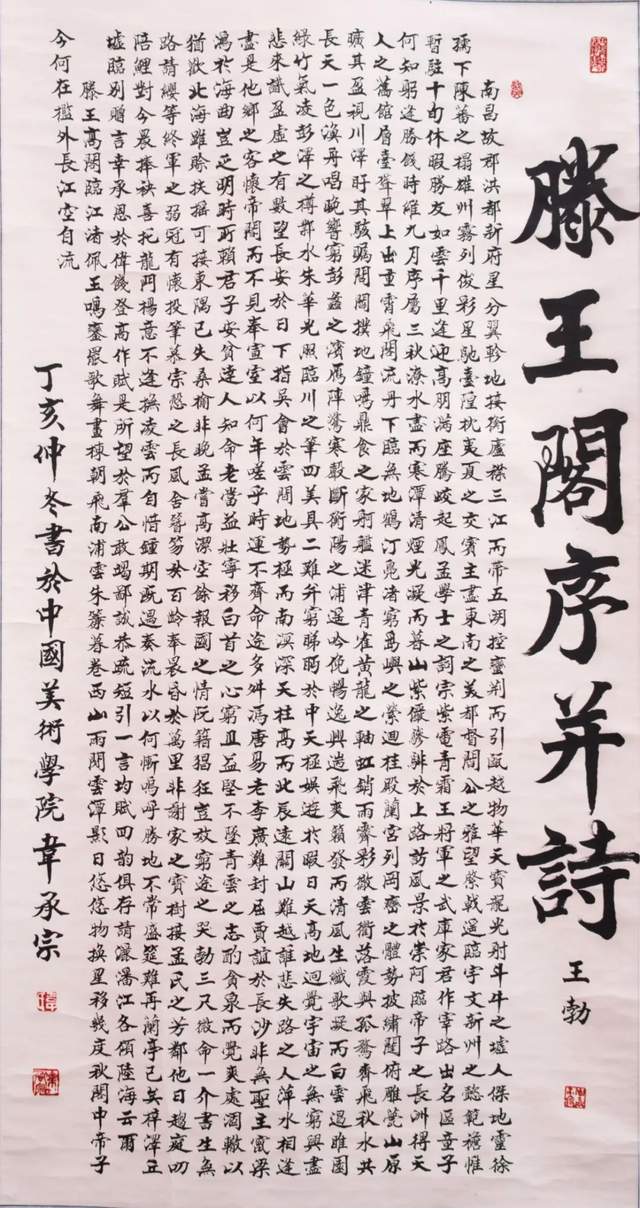 滕王閣序并詩
王勃
南昌故郡洪都新府星分翼軫地接衡廬襟三江而帶五湖控蠻荆而引甌越物華天寶龍光射斗牛之墟人傑地靈徐
孺下陳蕃之榻雄州霧列俊彩星馳臺隍枕夷夏之交賓主盡東南之美都督閻公之雅望棨戟遥臨宇文新州之懿範襜惟
暫駐十旬休暇勝友如雲千里逢迎高朋滿座騰蛟起鳳孟學士之詞宗紫電青霜王將軍之武庫家君作宰路出名區童子
何知躬逢勝餞時維九月序屬三秋潦水盡而寒潭清煙光凝而暮山紫儼驂騑於上路訪風景於崇阿臨帝子之長洲得天
人之舊館層臺聳翠上出重霄飛閣流丹下臨無地鶴汀鳧渚窮島嶼之縈迴桂殿蘭宫列岡巒之體勢披繡闥俯雕甍山原
曠其盈視川澤盱其駭矚閭閻撲地鐘鳴鼎食之家舸艦迷津青雀黄龍之軸虹銷雨霽彩徹雲衢落霞與孤鶩齊飛秋水共
長天一色漁舟唱晚響窮彭蠡之濱雁陣驚寒聲斷衡陽之浦遥吟俛暢逸興遄飛爽籟發而清風生纖歌凝而白雲遏睢園
緑竹氣凌彭澤之樽鄴水朱華光照臨川之筆四美具二難并窮睇眄於中天極娱遊於暇日天高地迥覺宇宙之無窮興盡
悲來識盈虛之有數望長安於日下指吴會於雲間地勢極而南溟深天柱高而北辰遠關山難越誰悲失路之人萍水相逢
盡是他鄉之客懷帝閽而不見奉宣室以何年嗟乎時運不齊命途多舛馮唐易老李廣難封屈賈誼於長沙非無聖主竄梁
鴻於海曲豈乏明時所賴君子安貧達人知命老當益壯寧移白首之心窮且益堅不墜青雲之志酌貪泉而覺爽處涸轍以
猶歡北海雖賒扶摇可接東隅已失桑榆非晚孟嘗高潔空餘報國之情阮籍猖狂豈效窮途之哭勃三尺微命一介書生無
路請纓等終軍之弱冠有懷投筆慕宗慤之長風舍簪笏於百齡奉晨昏於萬里非謝家之寶樹接孟氏之芳鄰他日趨庭叨
陪鯉對今晨捧袂喜托龍門楊意不逢撫凌雲而自惜鍾期既遇奏流水以何慚嗚呼勝地不常盛筵難再蘭亭已矣梓澤丘
墟臨别贈言幸承恩於偉餞登高作賦是所望於羣公敢竭鄙誠恭疏短引一言均賦四韵俱存請灑潘江各傾陸海云爾
滕王高閣臨江渚佩玉鳴鸞罷歌舞畫棟朝飛南浦雲朱簾暮卷西山雨閒雲潭影日悠悠物换星移幾度秋閣中帝子
今何在檻外長江空自流
丁亥仲冬書於中國美術學院韋承宗